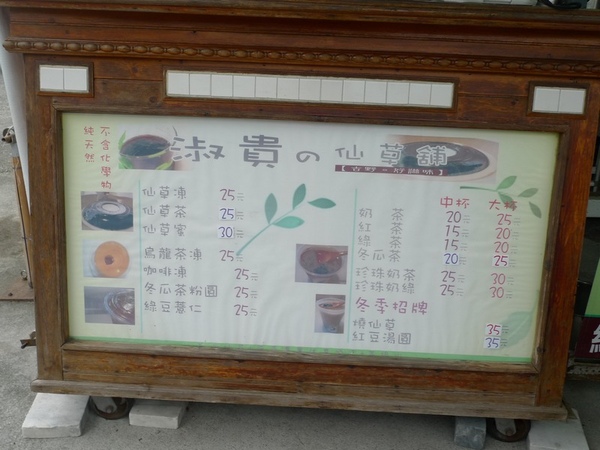 不含化學物
純天然
淑貴の仙草舖
仙草凍 25元
仙草茶 25元
仙草蜜 30元
烏龍茶凍 25元
咖啡凍 25元
冬瓜茶粉圓 25元
綠豆薏仁 25元
中杯 大杯
奶茶 20元 25元
紅茶 15元 20元
綠茶 15元 20元
冬瓜茶 20元 25元
珍珠奶茶 25元 30元
珍珠奶綠 25元 30元
冬季招牌
燒仙草 35元
紅豆湯圓 35元